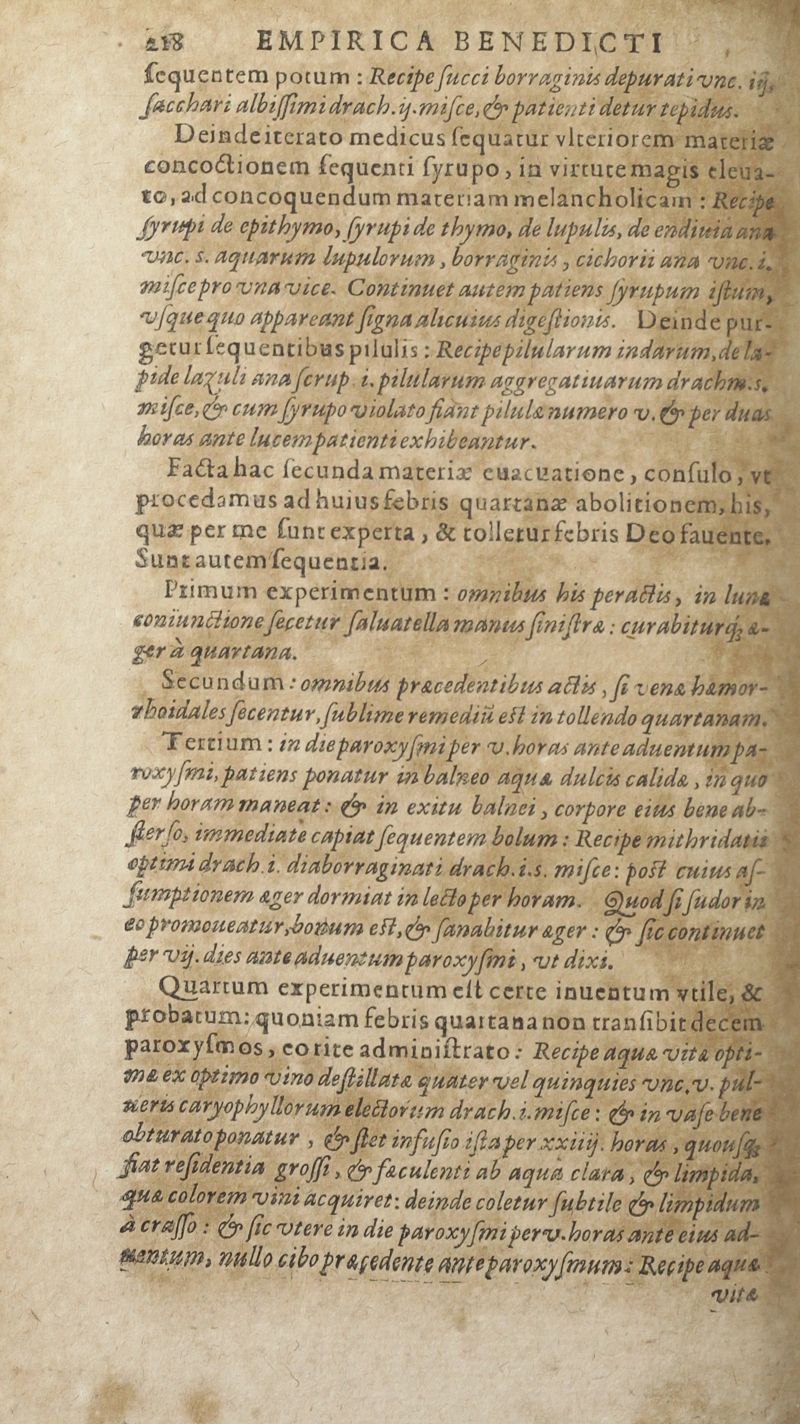 218 EMPIRICA BENEDICTI
ſequentem potum : Recipe ſucci borraginis depurati vnc. iij,
ſacchari albiſſimi drach. ij. miſce, & patienti detur tepidus.
Deinde iterato medicus ſequatur vlteriorem materiæ
concoctionem ſequenti ſyrupo, in virtute magis eleua-
to, ad concoquendum materiam melancholicam : Recipe
ſyrupi de epithymo, ſyrupi de thymo, de lupulis, de endiuia ana
vnc. s. aquarum lupulorum, borraginis, cichorii ana vnc. i.
miſce pro vna vice. Continuet autem patiens ſyrupum iſtum,
vſque quo appareant ſigna alicuius digeſtionis. Deinde pur-
getur ſequentibus pilulis : Recipe pilularum indarum, de la-
pide lazuli ana ſcrup. i. pilularum aggregatiuarum drachm. s.
miſce, & cum ſyrupo violato fiant pilulæ numero v. & per duas
horas ante lucem patienti exhibeantur.
Facta hac ſecunda materiæ euacuatione, conſulo, vt
procedamus ad huius febris quartanæ abolitionem, his,
quæ per me ſunt experta, & tolletur febris Deo fauente.
Sunt autem ſequentia.
Primum experimentum : omnibus his peractis, in lunæ
coniunctione ſecetur ſaluatella manus ſiniſtræ : curabiturq; æ-
ger à quartana.
Secundum : omnibus præcedentibus actis, ſi venæ hæmor-
rhoidales ſecentur, ſublime remediũ eſt in tollendo quartanam.
Tertium : in die paroxyſmi per v. horas ante aduentum pa-
roxyſmi, patiens ponatur in balneo aquæ dulcis calidæ, in quo
per horam maneat : & in exitu balnei, corpore eius bene ab-
ſterſo, immediatè capiat ſequentem bolum : Recipe mithridatii
optimi drach. i. diaborraginati drach. i.s. miſce : poſt cuius aſ-
ſumptionem æger dormiat in lecto per horam. Quod ſi ſudor in
eo promoueatur, bonum eſt, & ſanabitur æger : & ſic continuet
per vij. dies ante aduentum paroxyſmi, vt dixi.
Quartum experimentum eſt certe inuentum vtile, &
probatum : quoniam febris quartana non tranſibit decem
paroxyſmos, eo rite adminiſtrato : Recipe aquæ vitæ opti-
mæ ex optimo vino deſtillatæ quater vel quinquies vnc. v. pul-
ueris caryophyllorum electorum drach. i. miſce : & in vaſe bene
obturato ponatur, & ſtet infuſio iſta per xxiiij. horas, quouſq;
fiat reſidentia groſſi, & fæculenti ab aqua clara, & limpida,
quæ colorem vini acquiret : deinde coletur ſubtile & limpidum
à craſſo : & ſic vtere in die paroxyſmi per v. horas ante eius ad-
uentum, nullo cibo præcedente ante paroxyſmum : Recipe aquæ
vitæ